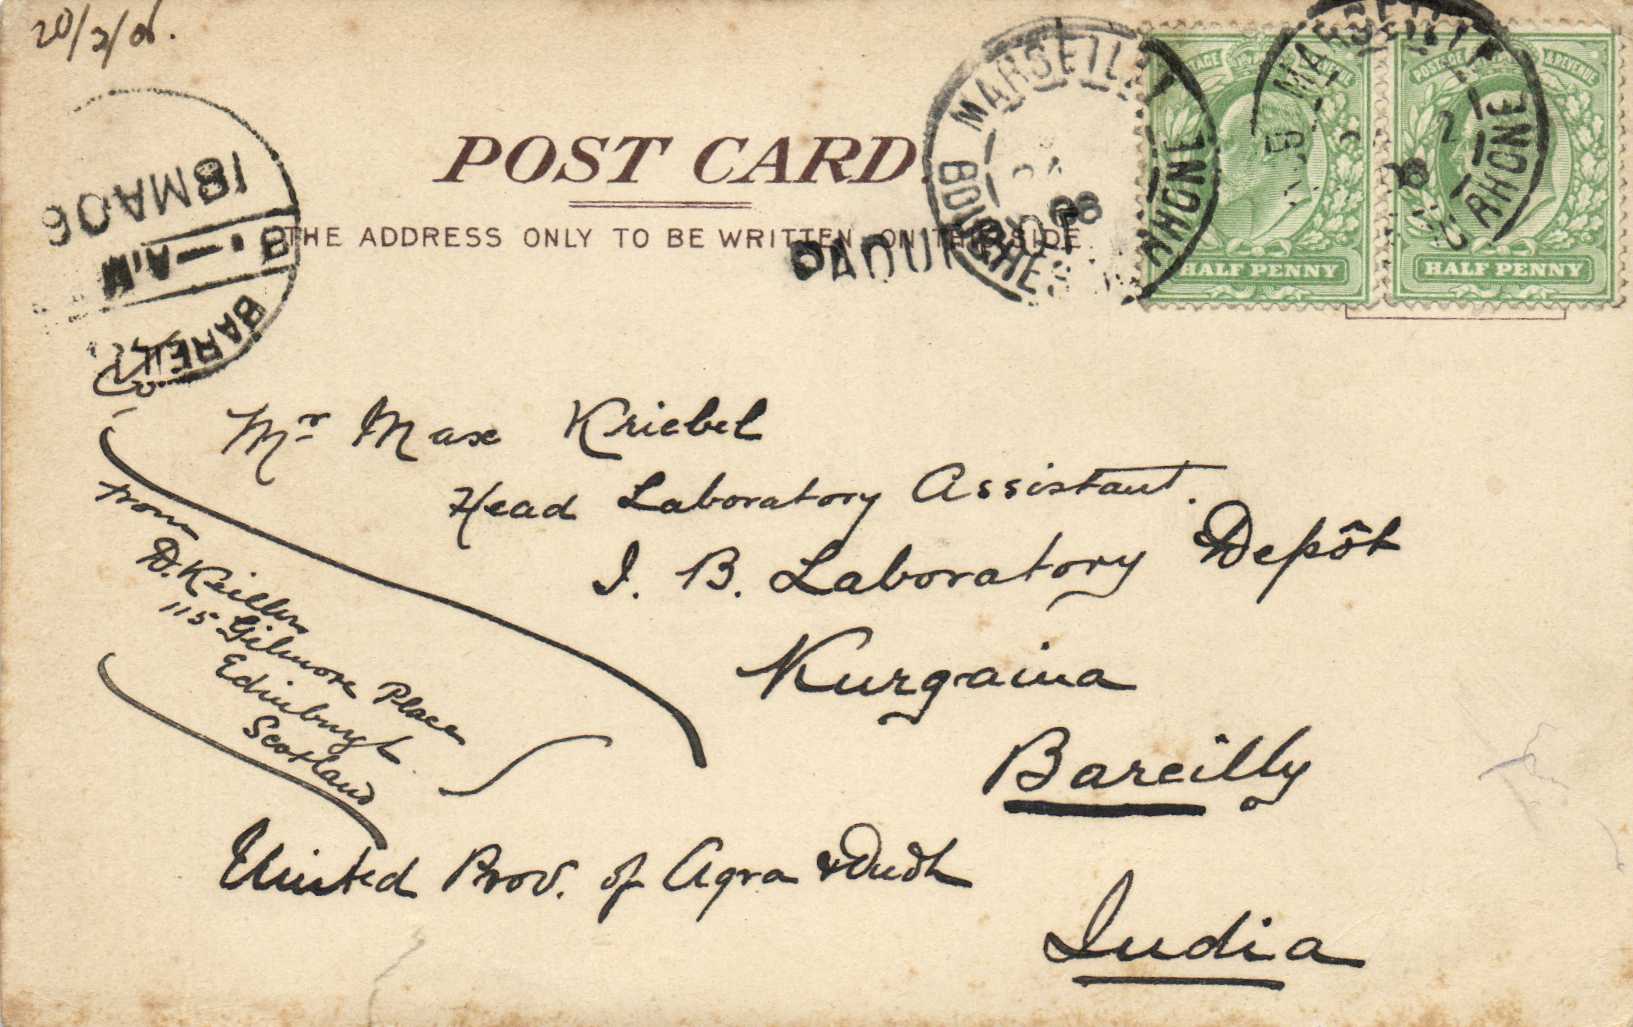 20/2/06.
18MA06
8 . — A.M
BAREILLY
POST CARD.
THE ADDRESS ONLY TO BE WRITTEN ON THIS SIDE
MARSEILLE
BOUCHES RHONE
PAQUEBOT
MARSEILLE
RHONE
POSTAGE & REVENUE
HALF PENNY
POSTAGE & REVENUE
HALF PENNY
Mr Max Kriebel
Head Laboratory Assistant.
I. B. Laboratory Depôt
Kurgaina
Bareilly
United Prov. of Agra & Oudh
India
from
D. Keiller
115 Gilmore Place
Edinburgh
Scotland